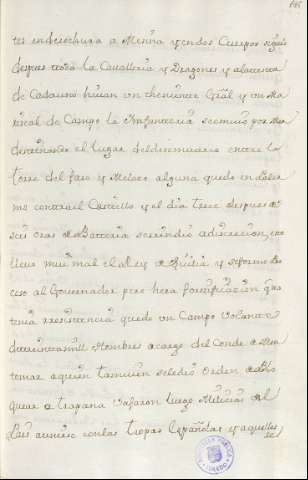 tes en derechura a Mesina y en dos Cuerpos siguio
despues toda la Cavalleria y Dragones y a la frente
de Cada uno hiuan un theniente Gral y un Ma
riscal de Campo la Infanteria se comvio por Mar
determinado el lugar del desemuarco entre la
torre del faro y Melaso alguna quedo en Paler
mo contra el Castillo y el dia trece despues de
seis oras de Batteria se rindio a discrecion, en
mui mal el Rey de y se formo
ceso al Governador pero hera fortificacion que
tenia rresistencia quedo un Campo Volante
de treinta mill Hombres a cargo del Conde de Mon
temar a quien tamvien se le dio orden de Blo
quear a trapana vajaron luego Milicias del
Pais a unirse con las tropas Españolas y aquellas